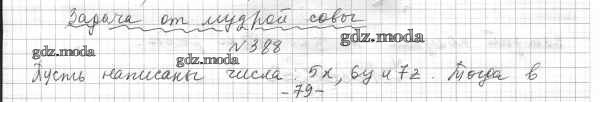 Задача от мудрой совы
N 388
gdz.moda
gdz.moda
gdz.moda
Пусть написаны числа: 5x, 6y и 7z. Тогда в
-79-